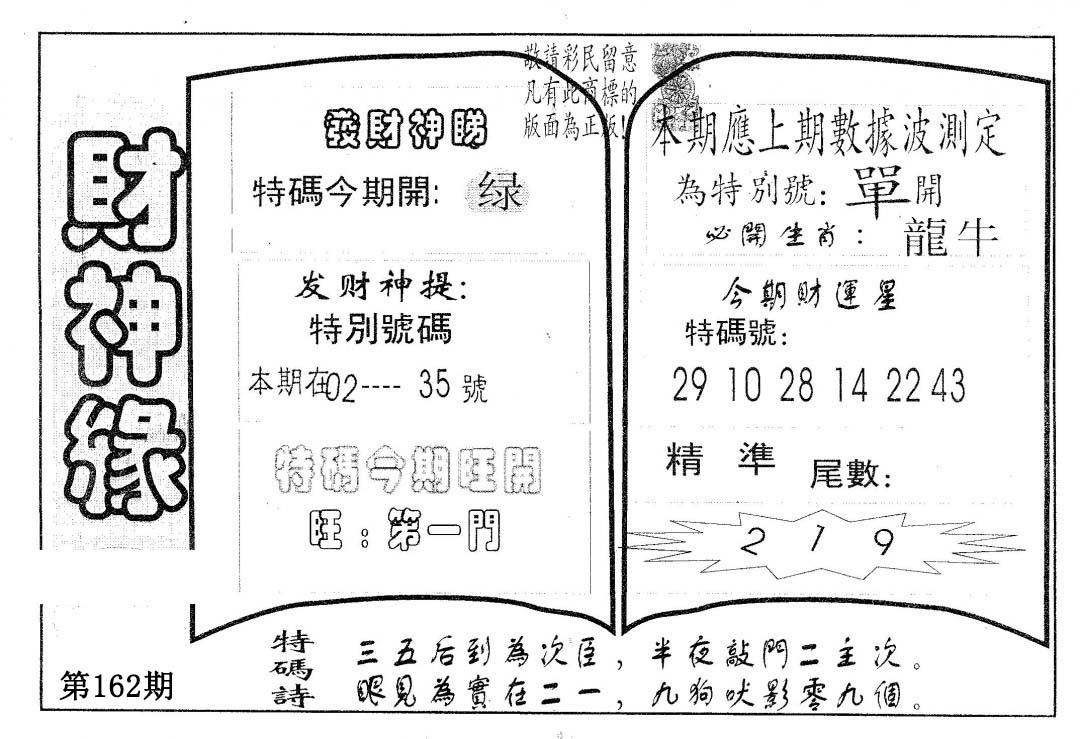 財神緣
第162期
敬請彩民留意
凡有此商標的
版面為正版!
發財神睇
特碼今期開: 绿
发财神提:
特別號碼
本期在02---- 35 號
特碼今期旺開
旺:第一門
本期應上期數據波測定
為特別號: 單開
必開生肖: 龍牛
今期財運星
特碼號:
29 10 28 14 22 43
精 準 尾數:
2 1 9
特碼詩
三五后到為次臣,半夜敲門二主次。
眼見為實在二一,九狗吠影零九個。